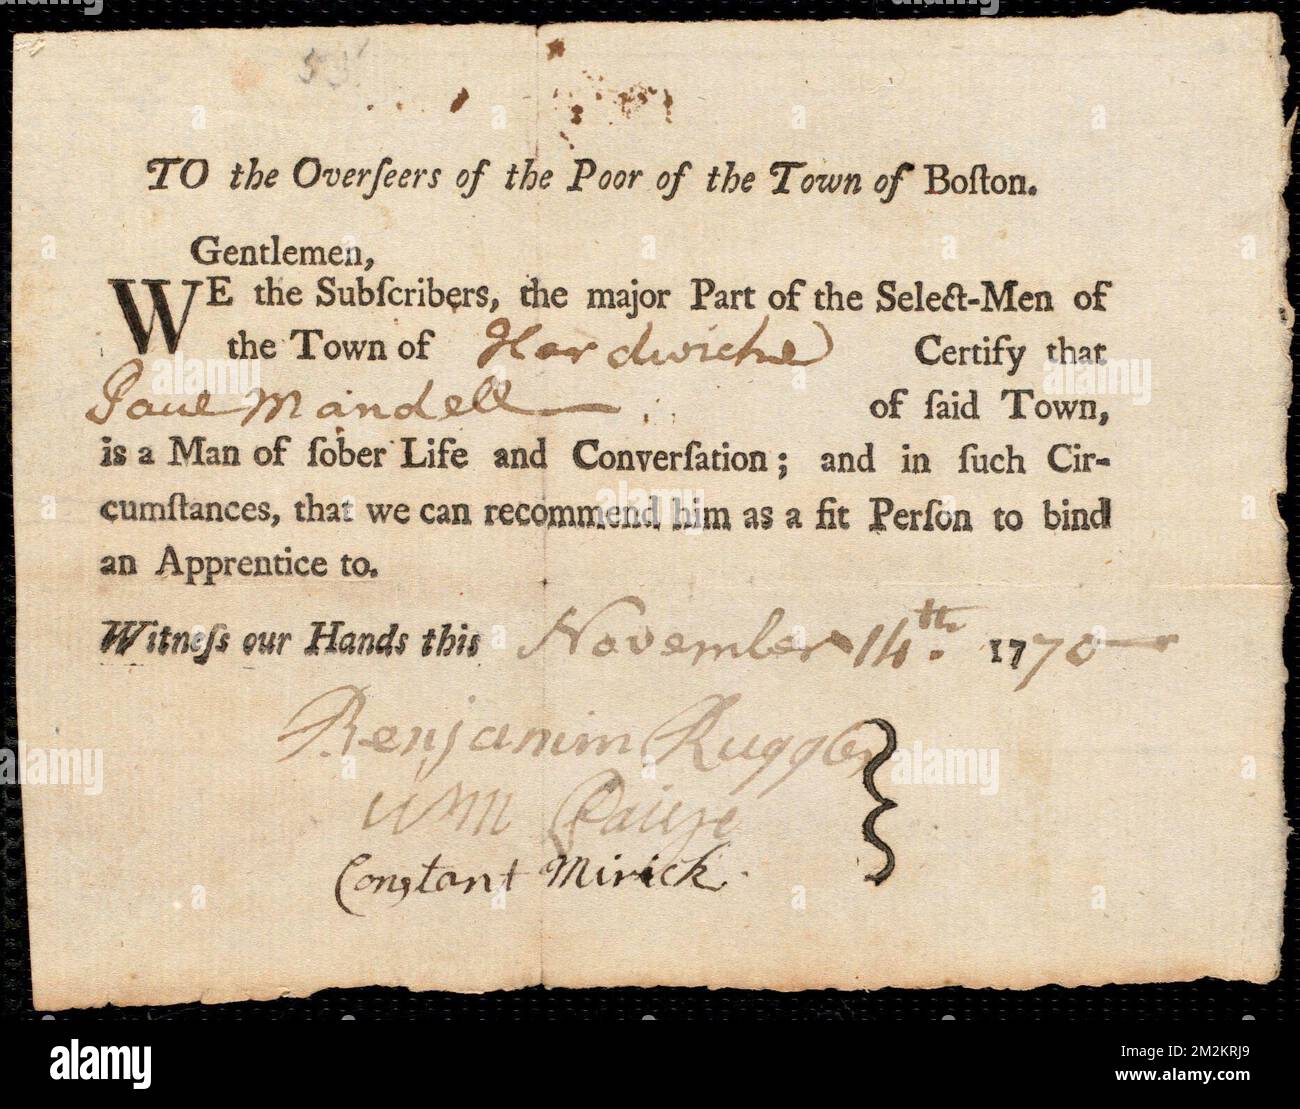 53
TO the Overſeers of the Poor of the Town of Boſton.
Gentlemen,
WE the Subſcribers, the major Part of the Select-Men of
the Town of Hardwicke Certify that
Paul Mandell of ſaid Town,
is a Man of ſober Life and Converſation; and in ſuch Cir-
cumſtances, that we can recommend him as a fit Perſon to bind
an Apprentice to.
Witneſs our Hands this November 14th. 1770
Benjamin Ruggles
Wm Paige
Constant Mirick
a alamy
alamy
Image ID: 2M2KRJ9
www.alamy.com